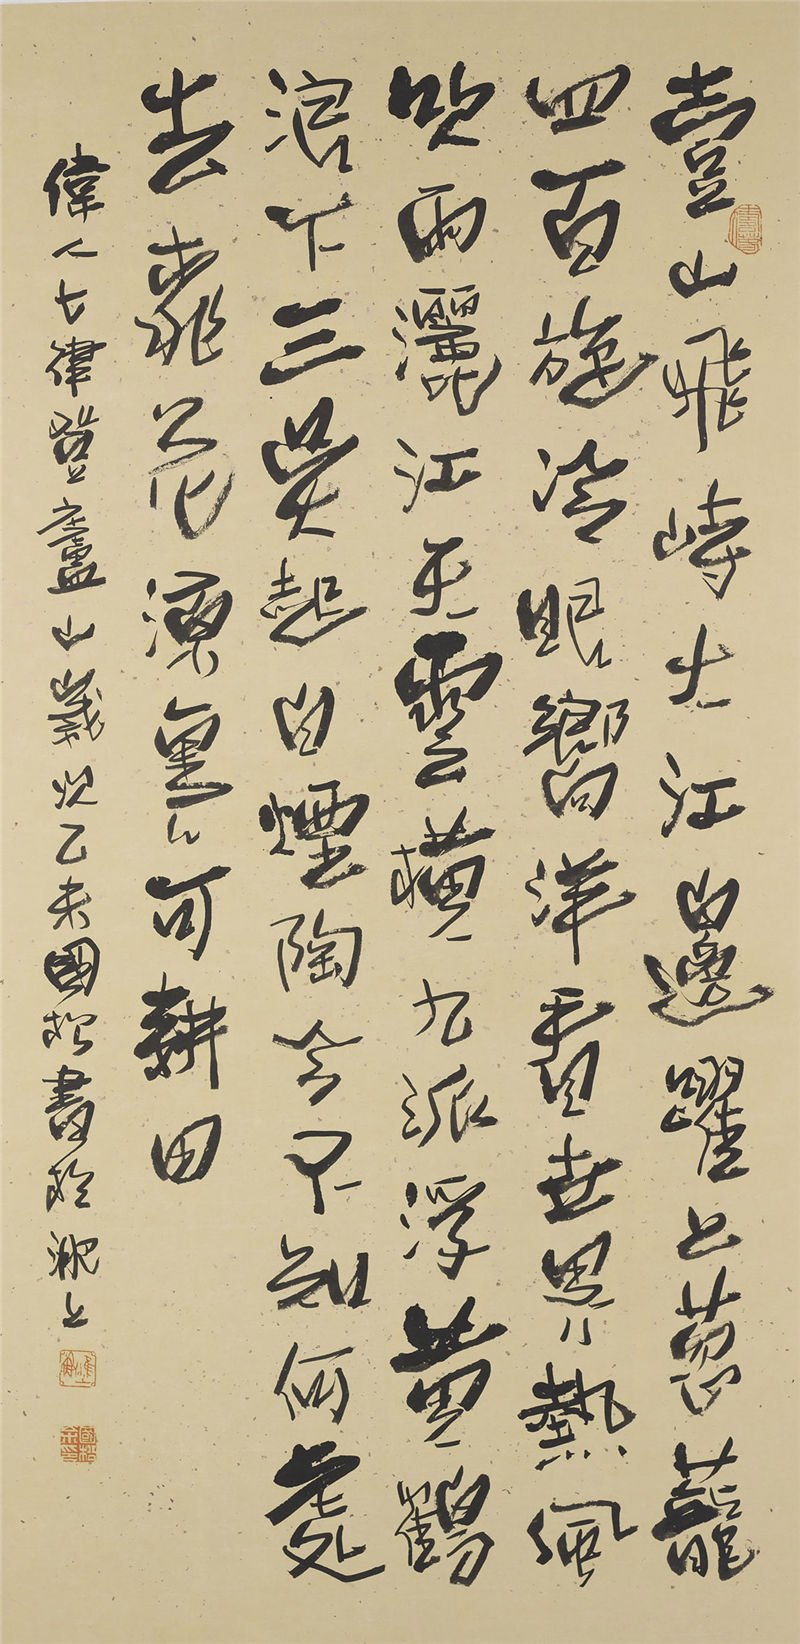 壹山飛峙大江邊躍上蔥蘢
四百旋冷眼嚮洋看世界熱風
吹雨灑江天雲橫九派浮黃鶴
浪下三吳起白煙陶令不知何處
去桃花源裏可耕田
偉人七律登廬山歲次乙未國松書於上